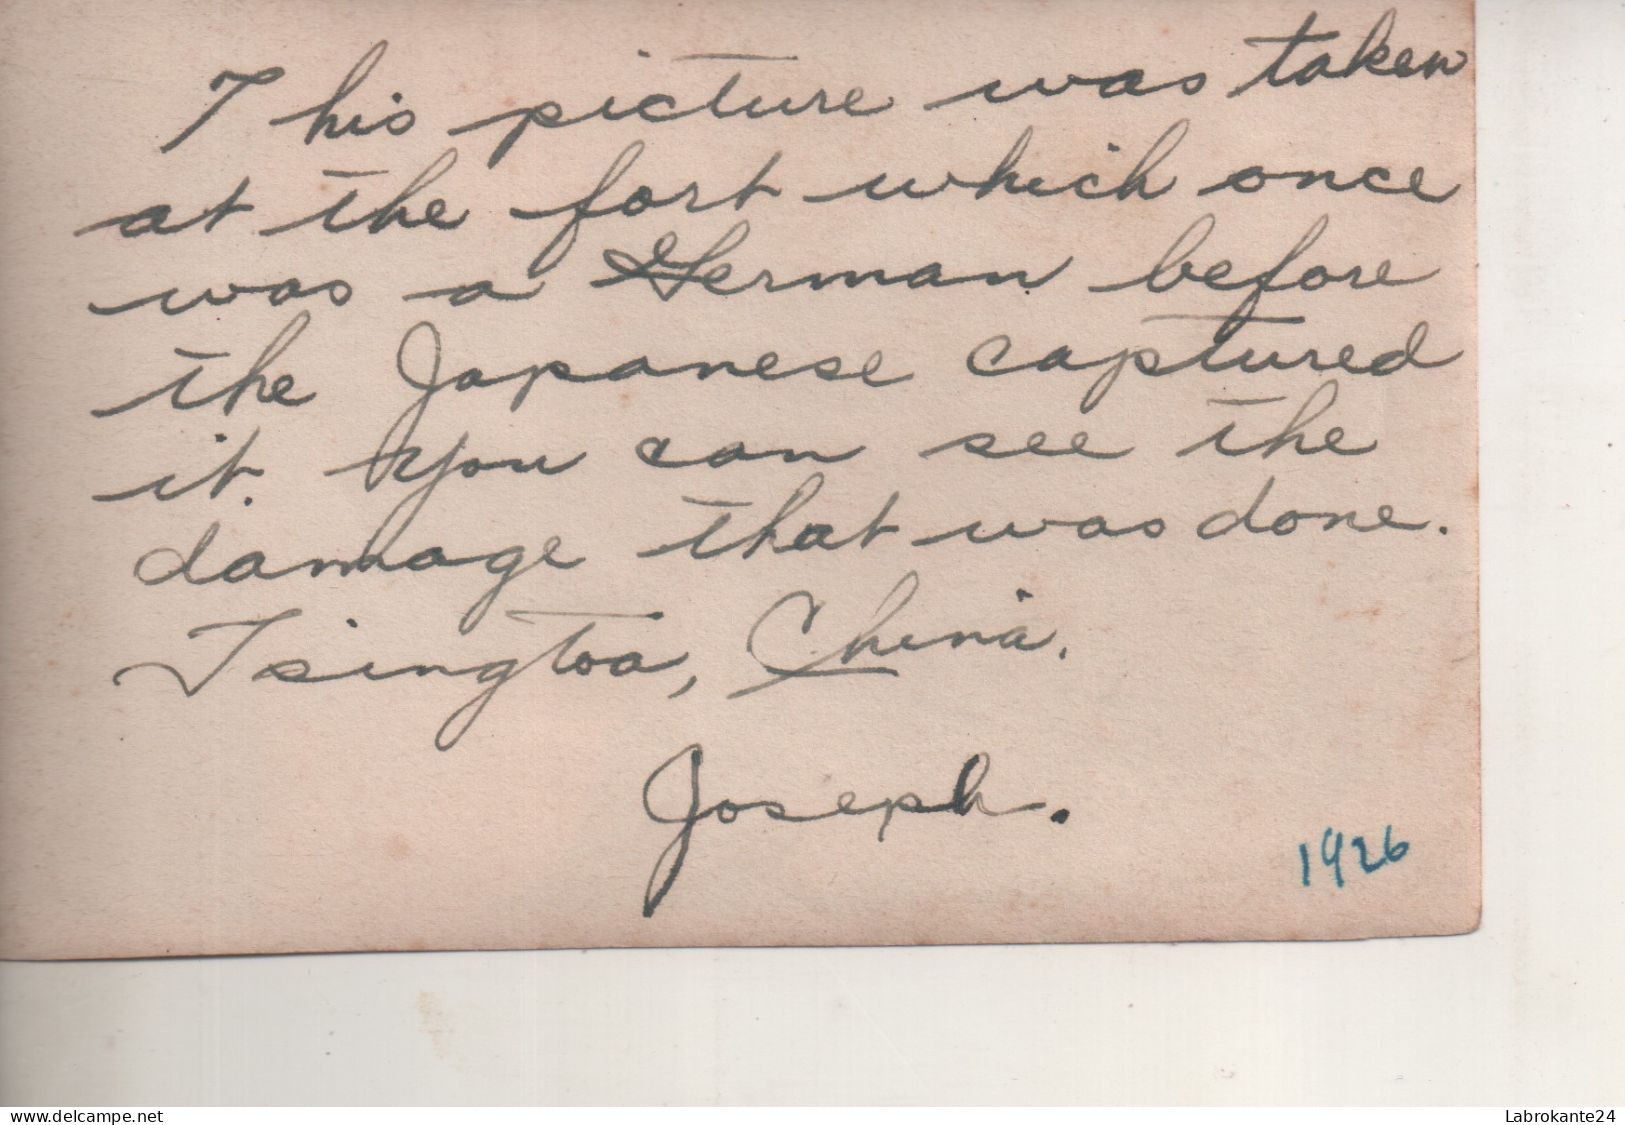 This picture was taken
at the fort which once
was a German before
the Japanese captured
it. You can see the
damage that was done.
Tsingtoa, China.
Joseph.
1926
www.delcampe.net
Labrokante24